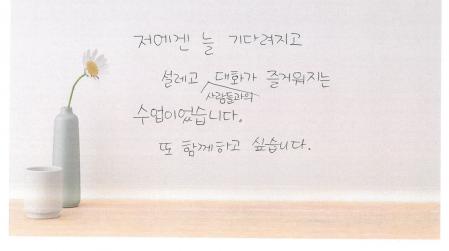 저에겐 늘 기다려지고
설레고 대화가 즐거워지는
사람들과의
수업이었습니다.
또 함께하고 싶습니다.